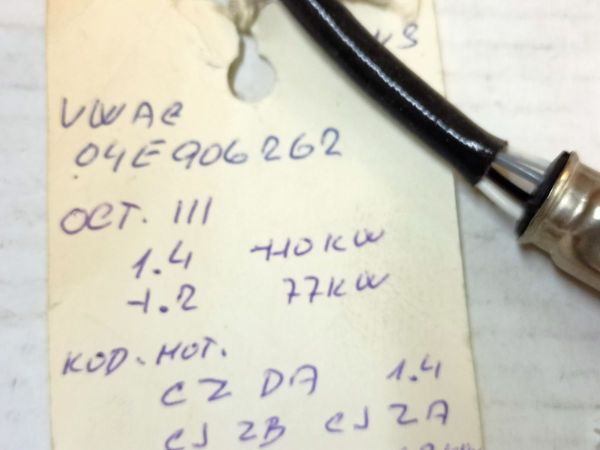 VWAG
04E906262
OCT. III
1.4 110 KW
1.2 77KW
KOD. MOT.
CZ DA 1.4
CJ ZB CJ ZA